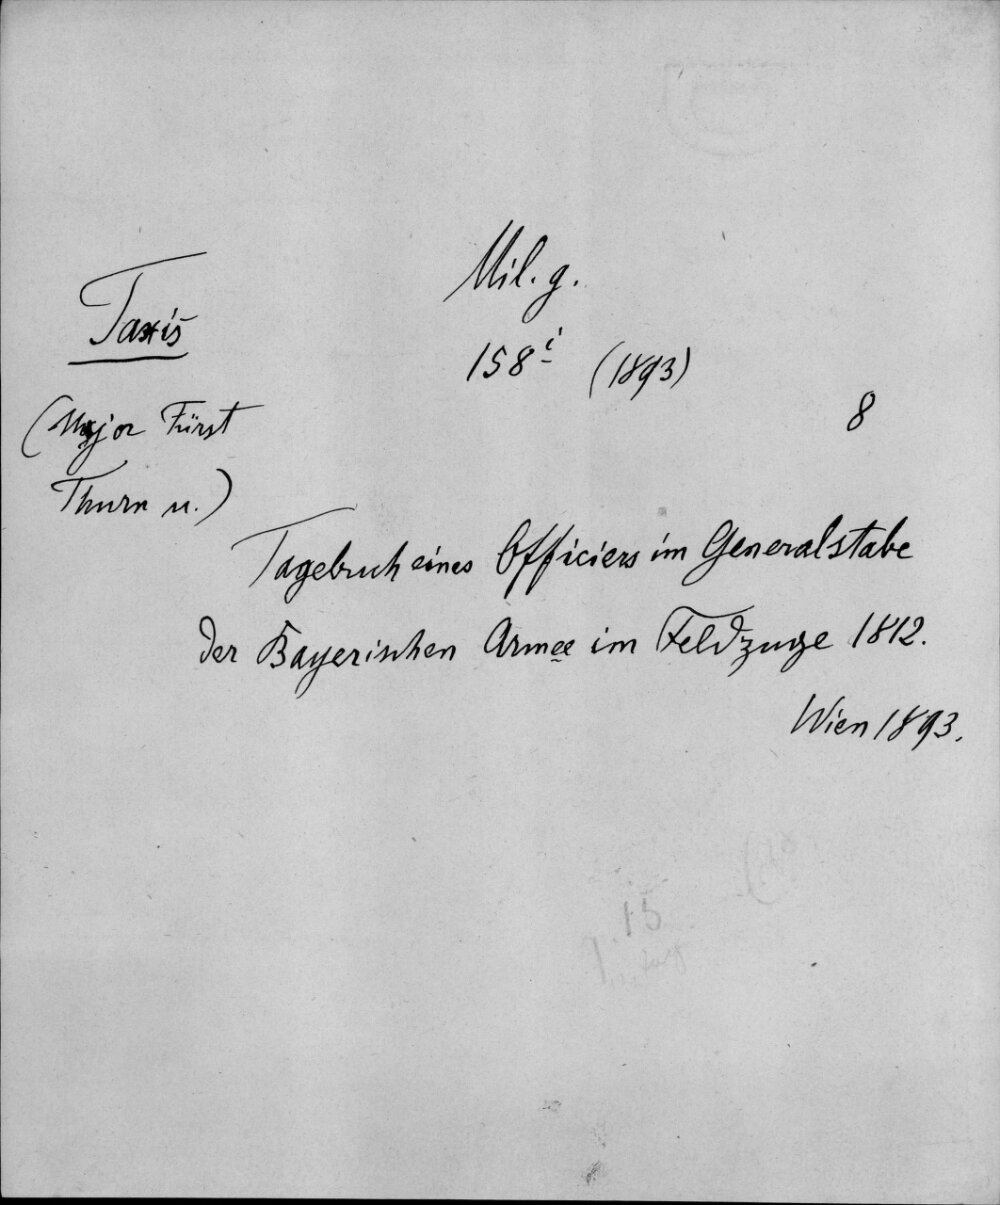 Mil. g.
Taxis
158 i (1893)
(Major Fürst
8
Thurn u.)
Tagebuch eines Officiers im Generalstabe
der Bayerischen Armee im Feldzuge 1812.
Wien 1893.
15